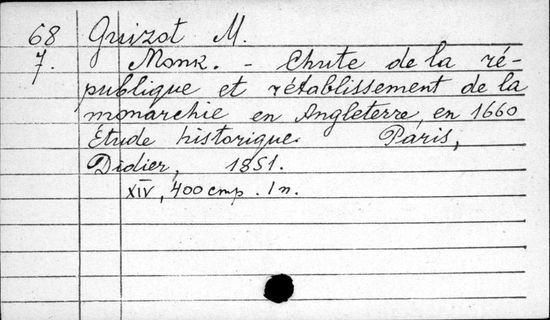 68 Guizot M.
7. Monk. - Chute de la ré-
publique et rétablissement de la
monarchie en Angleterre, en 1660
Étude historique. Paris,
Didier, 1851.
XIV, 400 стр. 1 п.